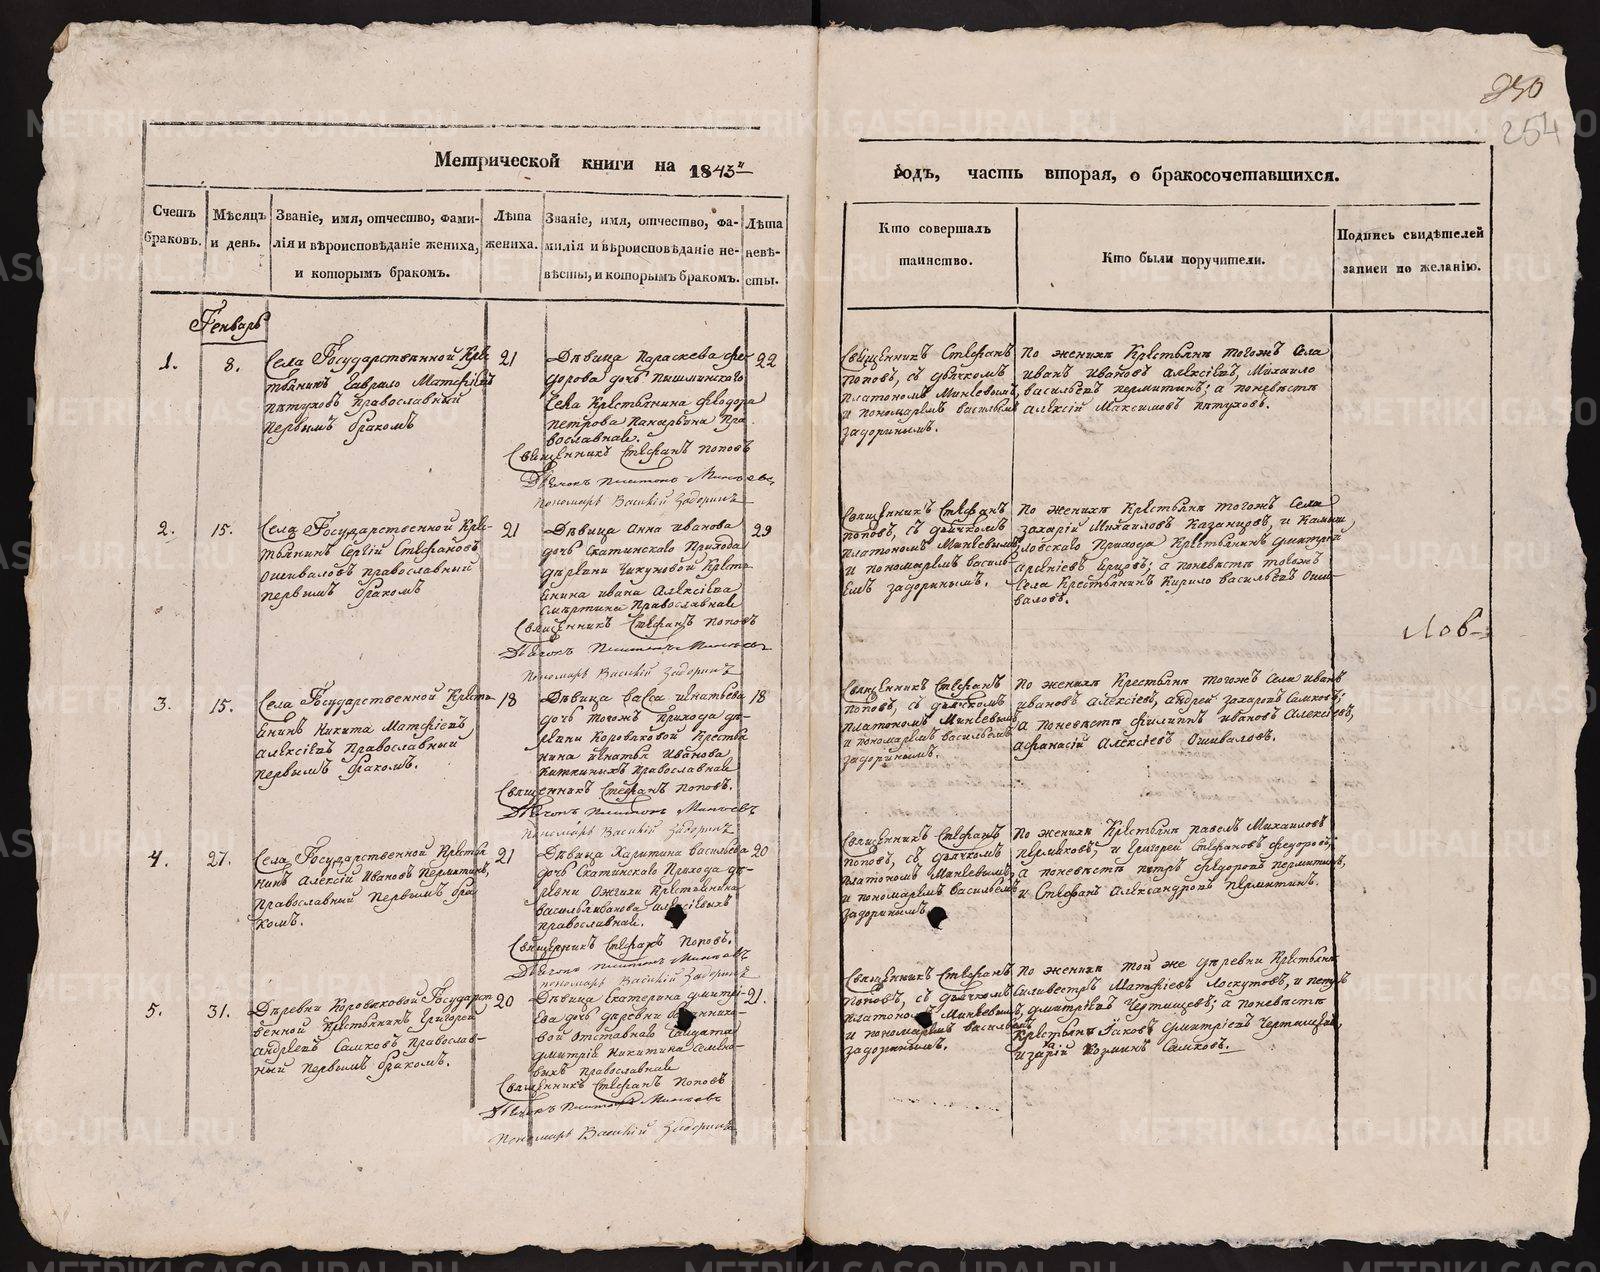 250
254
Метрической книги на 1843й
годъ, часть вторая, о бракосочетавшихся.
Счетъ браковъ.
Мѣсяцъ и день.
Званіе, имя, отчество, фами-
лія и вѣроисповѣданіе жениха,
и которымъ бракомъ.
Лѣта жениха.
Званіе, имя, отчество, фа-
милія и вѣроисповѣданіе не-
вѣсты, и которымъ бракомъ.
Лѣта невѣ-
сты.
Кто совершалъ
таинство.
Кто были поручители.
Подпись свидѣтелей
записи по желанію.
Генварь
1.
8.
Села Государственной Кре
стьянинъ Гаврило Матфіевъ
Пѣтуховъ православный
первымъ бракомъ
21
Дѣвица Параскева Фе
дорова дочь Пышминскаго
Села Крестьянина Феодора
Петрова Пра
вославная.
22
Священникъ Стефанъ Поповъ
Дьячокъ Платонъ Минѣевъ
Пономарь Василій Задоринъ
Священникъ Стефанъ
Поповъ, съ дьячкомъ
Платономъ Минѣевымъ
и пономаремъ Васильем
Задоринымъ.
По женихѣ Крестьяне тогожъ Села
Иванъ Ивановъ Алексѣевъ, Михайло
Васильевъ Пермитинъ; а поневѣстѣ
Алексій Максимовъ Пѣтуховъ.
2.
15.
Села Государственной Кре-
стьянинъ Сергій Стефановъ
Ошиваловъ православный
первымъ бракомъ
21
Дѣвица Анна Иванова
дочь Скатинскаго Прихода
деревни Чикуновой Кресть
янина Ивана Алексіева
Смертина Православная
29
Священникъ Стефанъ Поповъ
Дьячокъ Платонъ Минѣевъ
Пономарь Василій Задоринъ
Священникъ Стефанъ
Поповъ, съ дьячкомъ
Платономъ Минѣевымъ,
и пономаремъ Василь
емъ Задоринымъ.
По женихѣ Крестьяне тогожъ Села
Захарій Михайловъ Казанцовъ, и Камыш
ловскаго Прихода Крестьянинъ Дмитрей
Арсеніевъ а поневѣстѣ тогожъ
Села Крестьянинъ Кирило Васильевъ Оши-
валовъ.
Лов-
3.
15.
Села Государственной Кресть
янинъ Никита Матфіевъ
Алексіевъ Православный
первымъ бракомъ.
18
Дѣвица Васса Игнатьева
дочь тогожъ Прихода де-
ревни Коровяковой Кресть
нина Игнатья Иванова
Православная
18
Священникъ Стефанъ Поповъ.
Дьячокъ Платонъ Минѣевъ
Пономарь Василій Задоринъ
Священникъ Стефанъ
Поповъ, съ дьячкомъ
Платономъ Минѣевымъ
и пономаремъ Васильемъ
Задоринымъ.
По женихѣ Крестьяне тогожъ Села Иванъ
Ивановъ Алексіев, Андрей Захаровъ Самковъ;
а поневѣстѣ Филиппъ Ивановъ Алексѣевъ,
Афанасій Алексѣевъ Ошиваловъ.
4.
27.
Села Государственной Крестья
нинъ Алексій Ивановъ Пермитинъ,
Православный Первымъ бра
комъ.
21
Дѣвица Харитина Васильева
дочь Скатинскаго Прихода де-
ревни Ожгихи Крестьянина
Василья Иванова Алексіевыхъ
православная.
20
Священникъ Стефанъ Поповъ.
Дьячокъ Платонъ Минѣевъ
Пономарь Василій Задоринъ
Священникъ Стефанъ
Поповъ, съ дьячкомъ
Платономъ Минѣевымъ
и пономаремъ Васильемъ
Задоринымъ
По женихѣ Крестьяне Павелъ Михайловъ
Пермяковъ, и Григорей Стефановъ Федоровъ,
а поневѣстѣ Петръ Федоровъ Пермитинъ,
и Стефанъ Александровъ Пермитинъ.
5.
31.
Деревни Коровяковой Государст
венной Крестьянинъ Григорей
Андреевъ Самковъ Православ-
ный первымъ бракомъ.
20
Дѣвица Екатерина Дмитрі-
ева дочь деревни
вой отставнаго Салдата
Дмитрія Никитина Семено-
выхъ Православная
21.
Священникъ Стефанъ Поповъ
Дьячокъ Платонъ Минѣевъ
Пономарь Василій Задоринъ
Священникъ Стефанъ
Поповъ, съ дьячкомъ
Платоном Минѣевымъ,
и пономаремъ Васильемъ
Задоринымъ.
По женихѣ той же деревни Крестьяне
Силивестръ Матфіевъ Лоскутовъ, и Петръ
Дмитріевъ Чертищевъ; а поневѣстѣ
Крестьяне Яковъ Дмитріевъ Чертищевъ,
Козминъ Самковъ.
METRIKI.GASO-URAL.RU